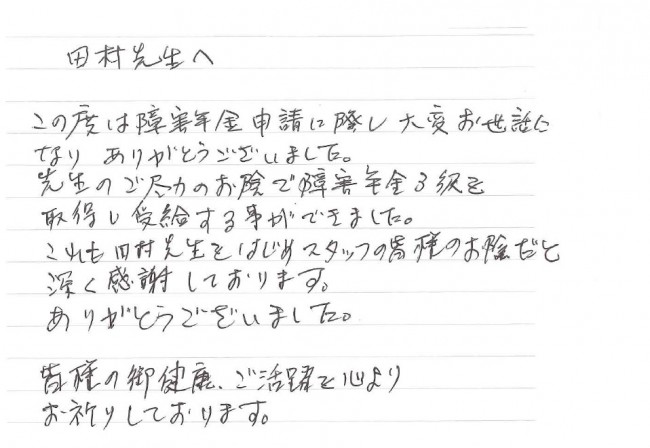 田村先生へ
この度は障害年金申請に際し大変お世話に
なり ありがとうございました。
先生のご尽力のお陰で障害年金3級を
取得し受給する事ができました。
これも田村先生をはじめスタッフの皆様のお陰だと
深く感謝しております。
ありがとうございました。
皆様の御健康、ご活躍を心より
お祈りしております。